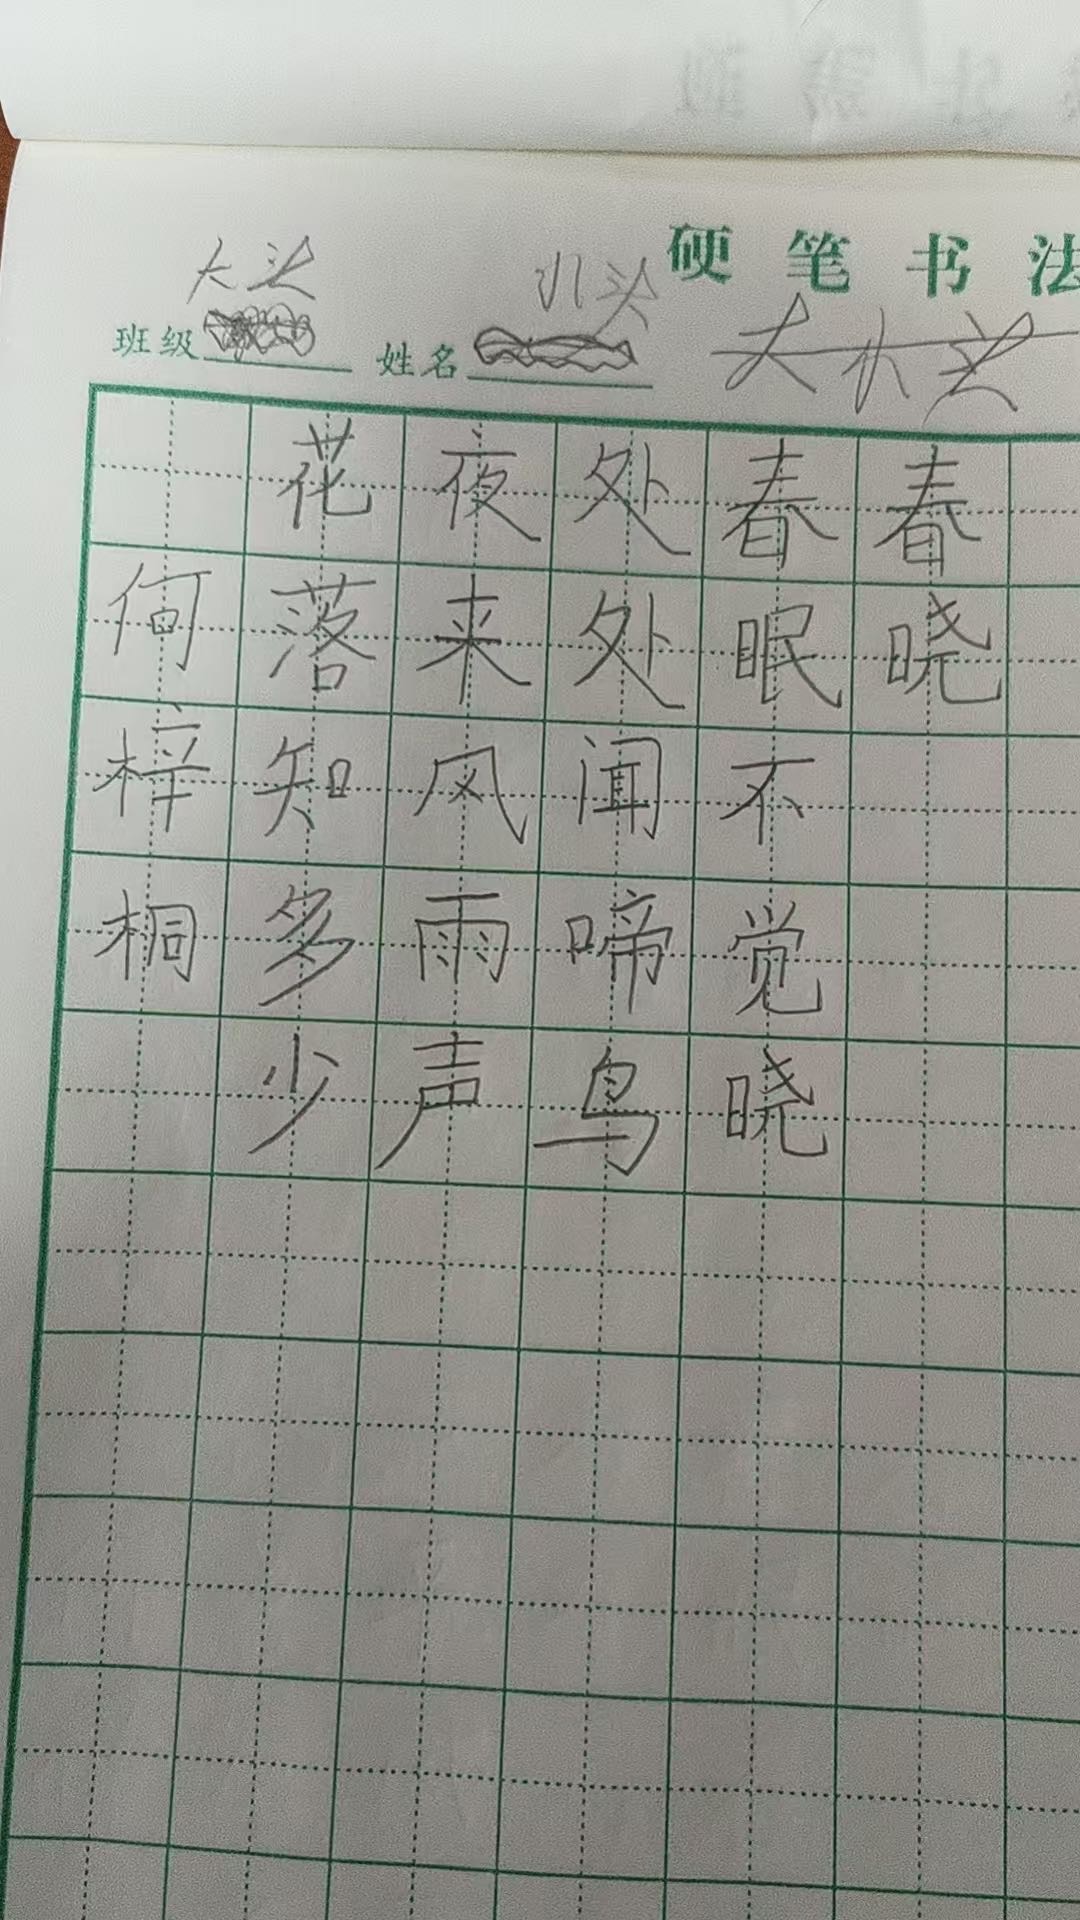 硬笔书法
大头
小头
班级
姓名
大小头
春晓
春眠不觉晓
处处闻啼鸟
夜来风雨声
花落知多少
何梓桐